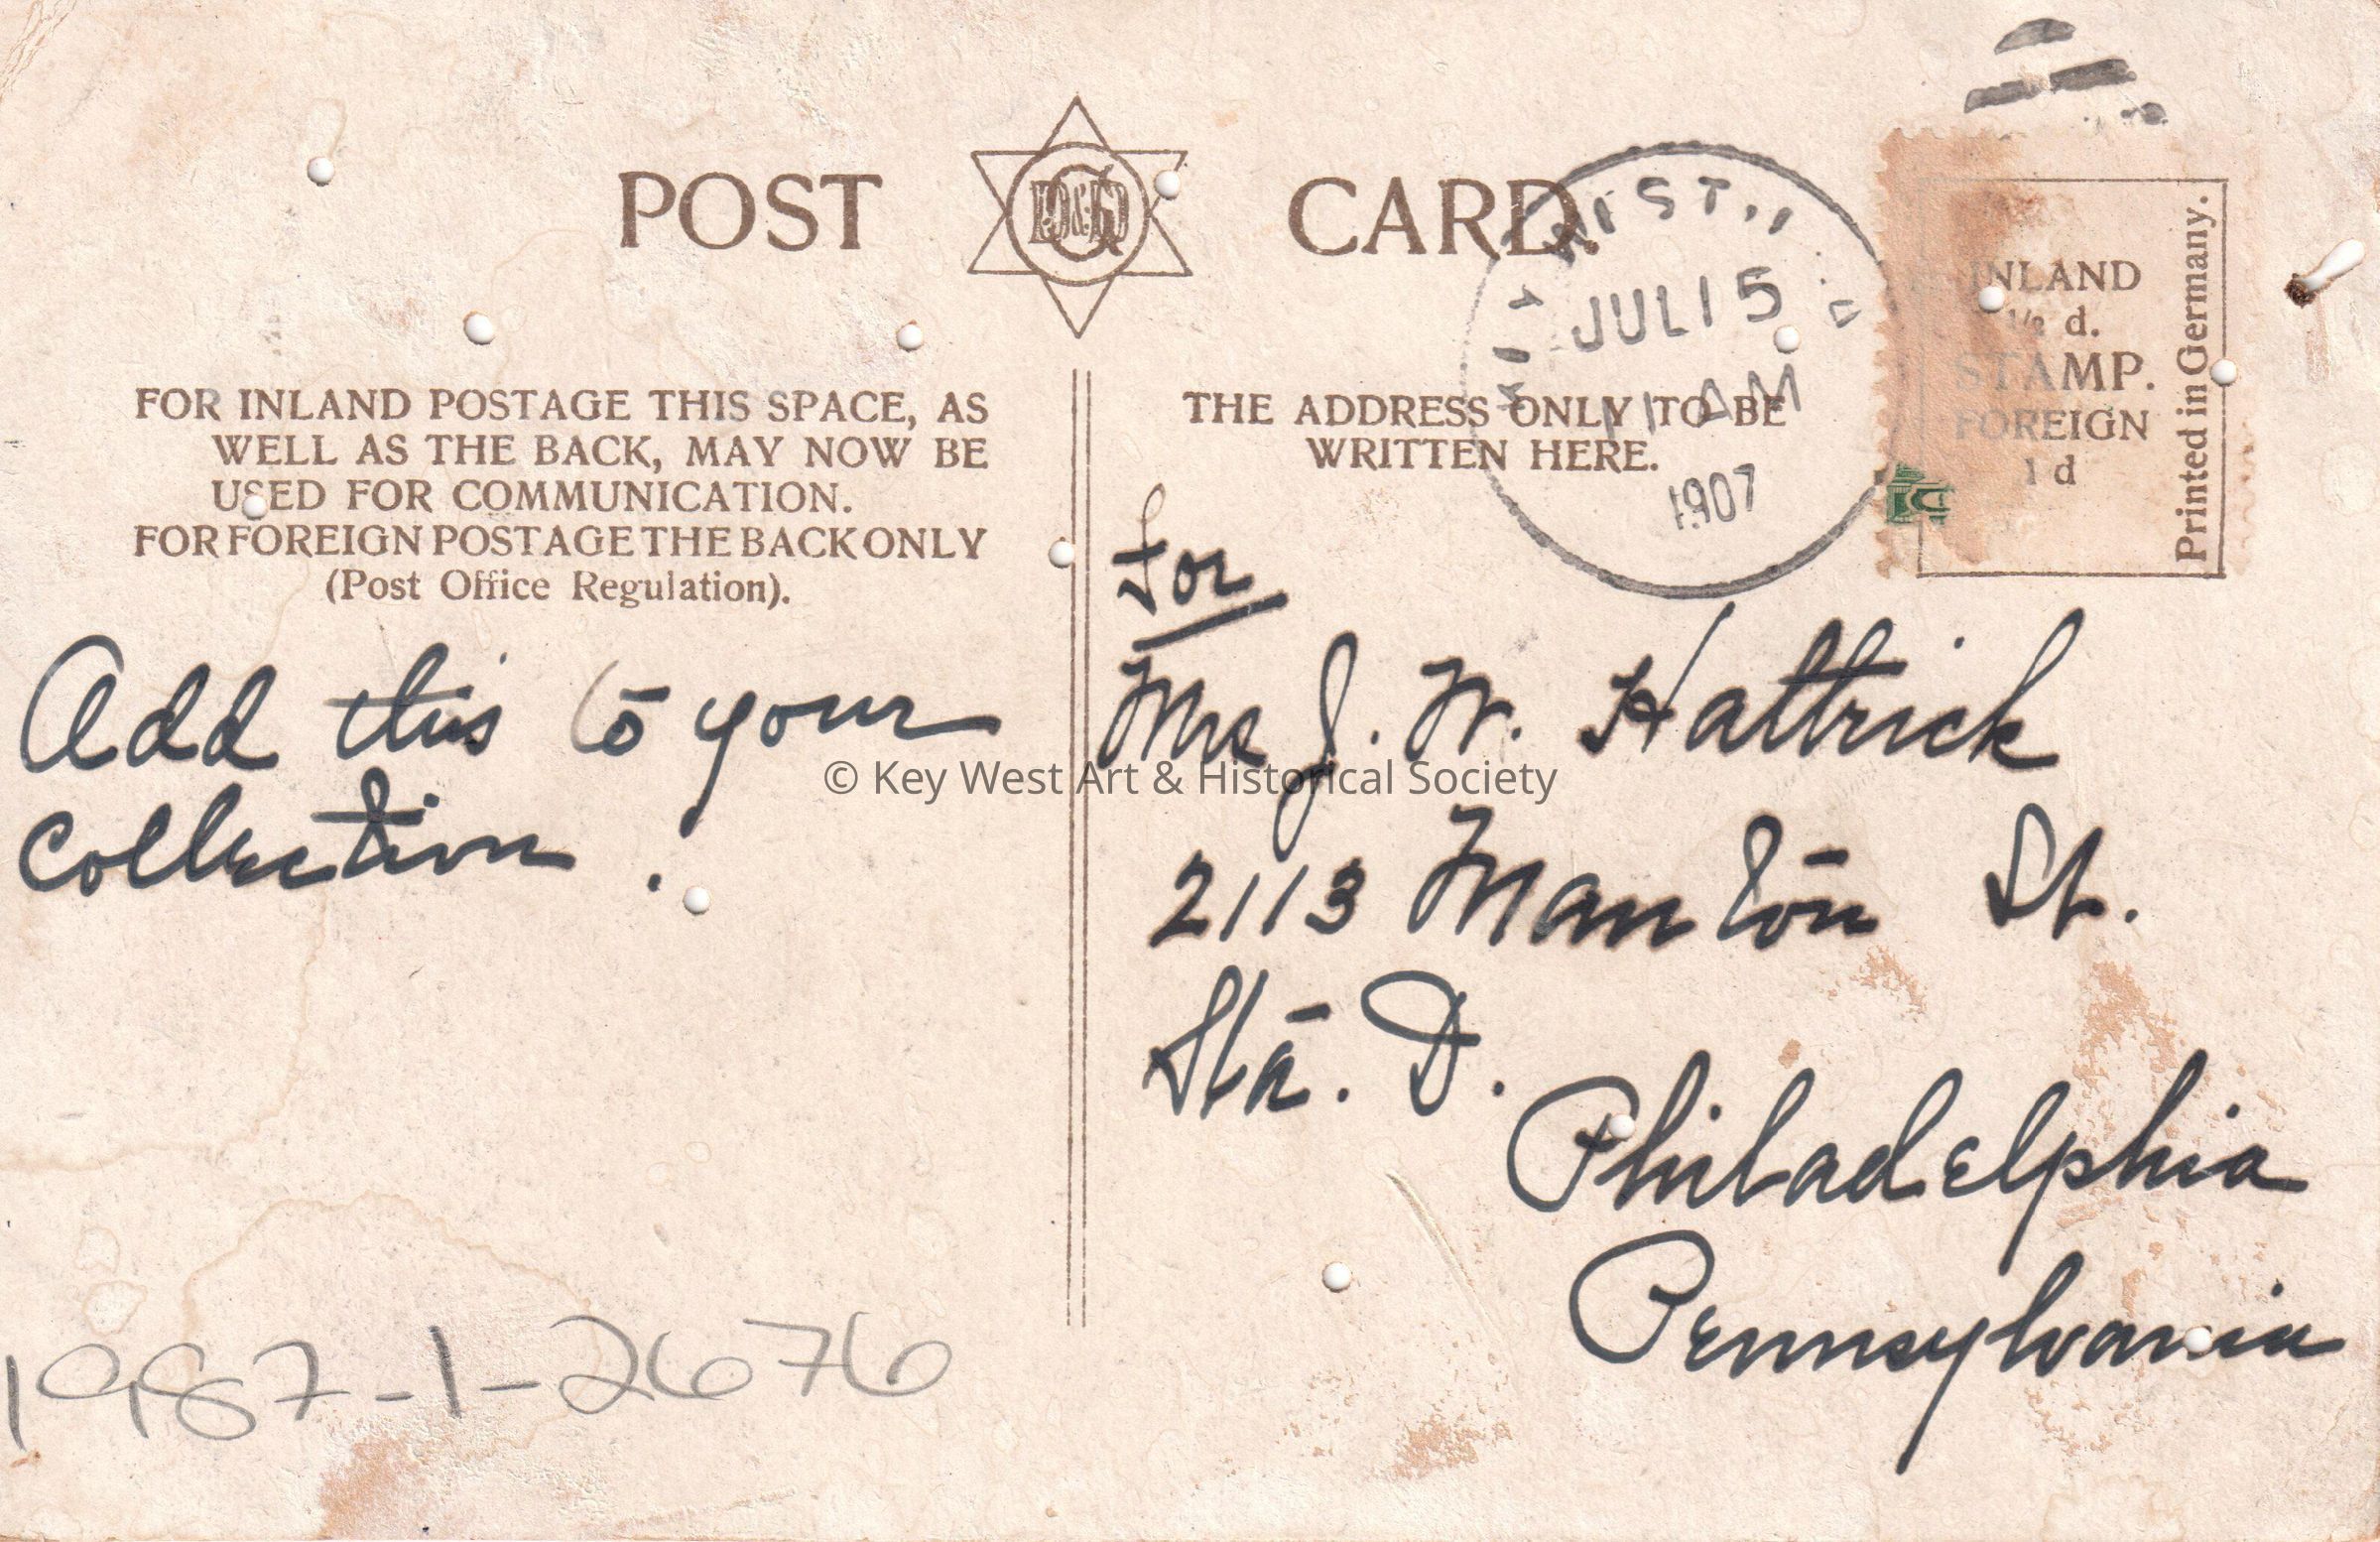 POST CARD.
IST.,
JUL 15
11 AM
1907
INLAND
½ d.
STAMP.
FOREIGN
1 d
Printed in Germany.
FOR INLAND POSTAGE THIS SPACE, AS
WELL AS THE BACK, MAY NOW BE
USED FOR COMMUNICATION.
FOR FOREIGN POSTAGE THE BACK ONLY
(Post Office Regulation).
THE ADDRESS ONLY TO BE
WRITTEN HERE.
Add this to your
collection.
For
Mrs J. W. Hattrick
2113 Manton St.
Sta. D.
Philadelphia
Pennsylvania
© Key West Art & Historical Society
1987-1-2676